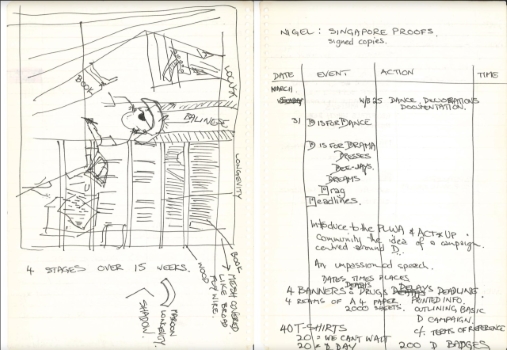 BOOK
LOUYA
BALINESE
LONGEVITY
BOOK
MESH COVERED
LIKE BREAD
PLY NICE.
WOOD
4 STAGES OVER 15 WEEKS.
MAROON
LONGEVITY.
SHADOW.
NIGEL: SINGAPORE PROOFS.
signed copies.
DATE EVENT ACTION TIME
MARCH
DANCE
DOCUMENTATION.
31 D IS FOR DANCE
D IS FOR DRAMA
DRESSES
DEE-JAYS.
DREAMS
Drag
Deadlines.
Introduce to the PLWA & ACT UP
community the idea of a campaign
centred around D.
An impassioned speech.
DATES, TIMES PLACES
DEATHS DELAYS
4 BANNERS: DRUGS DEADLINE.
4 REAMS OF A4 PAPER PRINTED INFO.
2000 SHEETS. OUTLINING BASIC
D CAMPAIGN.
40 T-SHIRTS TERMS OF REFERENCE
20: WE CAN'T WAIT
20 D. DAY 200 D BADGES